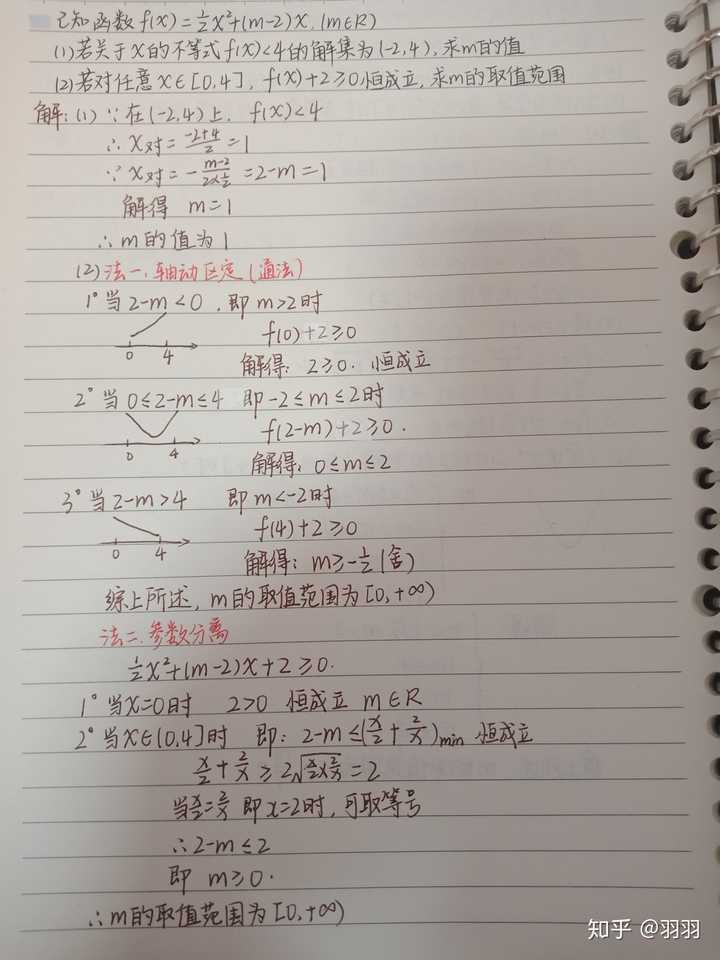 已知函数f(x)=½x²+(m-2)x.(m∈R)
(1)若关于x的不等式f(x)<4的解集为(-2,4),求m的值
(2)若对任意x∈[0,4],f(x)+2≥0恒成立,求m的取值范围
解:(1)∵在(-2,4)上,f(x)<4
∴x对=(-2+4)/2=1
∵x对=-(m-2)/(2×½)=2-m=1
解得 m=1
∴m的值为1
(2)法一.轴动区定(通法)
1°当2-m<0,即m>2时
f(0)+2≥0
0 4
解得:2≥0.恒成立
2°当0≤2-m≤4 即-2≤m≤2时
f(2-m)+2≥0.
0 4
解得:0≤m≤2
3°当2-m>4 即m<-2时
f(4)+2≥0
0 4
解得:m≥-½(舍)
综上所述,m的取值范围为[0,+∞)
法二.参数分离
½x²+(m-2)x+2≥0.
1°当x=0时 2>0 恒成立 m∈R
2°当x∈(0,4]时 即:2-m≤(x/2+2/x)min 恒成立
x/2+2/x≥2√(x/2×2/x)=2
当x/2=2/x 即x=2时,可取等号
∴2-m≤2
即 m≥0.
∴m的取值范围为[0,+∞)
知乎 @羽羽